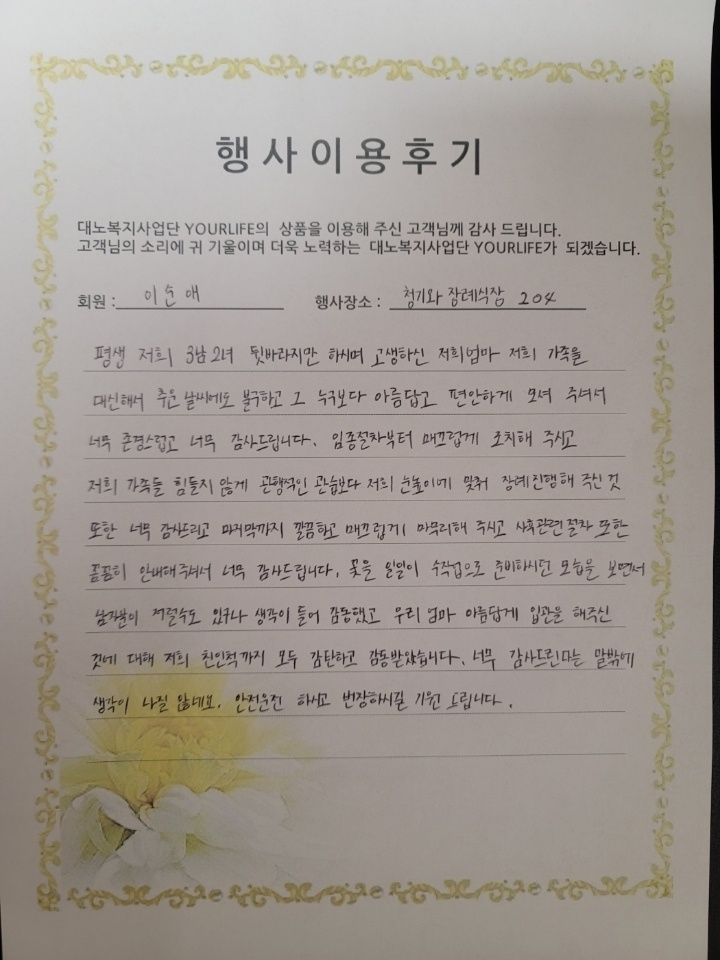 행사이용후기
대노복지사업단 YOURLIFE의 상품을 이용해 주신 고객님께 감사 드립니다.
고객님의 소리에 귀 기울이며 더욱 노력하는 대노복지사업단 YOURLIFE가 되겠습니다.
회원 : 이순애 행사장소 : 청기와 장례식장 204
평생 저희 3남 2녀 뒷바라지만 하시며 고생하신 저희엄마 저희 가족을
대신해서 추운 날씨에도 불구하고 그 누구보다 아름답고 편안하게 모셔 주셔서
너무 존경스럽고 너무 감사드립니다. 임종절차부터 매끄럽게 조치해 주시고
저희 가족들 힘들지 않게 관행적인 관습보다 저희 눈높이에 맞춰 장례진행해 주신 것
또한 너무 감사드리고 마지막까지 깔끔하고 매끄럽게 마무리해 주시고 사후관련 절차 또한
꼼꼼히 안내해주셔서 너무 감사드립니다. 꽃을 일일이 수작업으로 준비하시던 모습을 보면서
남자분이 저럴수도 있구나 생각이 들어 감동했고 우리 엄마 아름답게 입관을 해주신
것에 대해 저희 친인척까지 모두 감탄하고 감동받았습니다. 너무 감사드린다는 말밖에
생각이 나질 않네요. 안전운전 하시고 번창하시길 기원 드립니다.